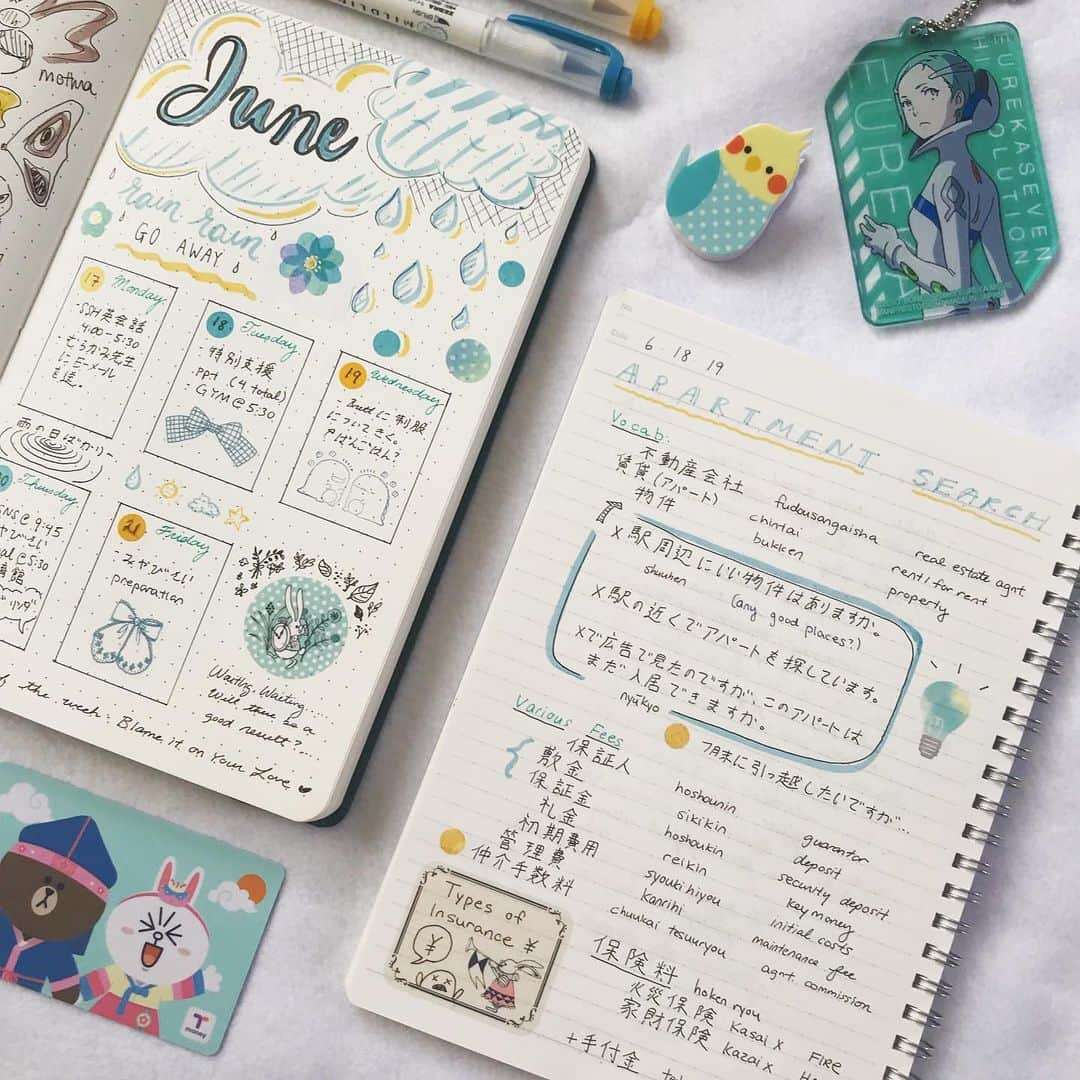 mothra
June
rain rain
GO AWAY
17
Monday
・SSH英会話
4:00-5:30
むらかみ先生
にE-メール
を送。
18
Tuesday
特別支援
ppt (4 total)
・GYM@5:30
19
Wednesday
Brettに制服
について きく。
ばんごはん?
雨の日ばかりー
Thursday
@ 9:45
@5:30
21
Friday
preparation
Waiting, Waiting....
Will there be a
good result?...
the week: Blame it on Your Love
ZEBRA
MILDLINER
EUREKASEVEN
HI EVOLUTION
EUREKA
T
money
No.
Date
6. 18 19
APARTMENT SEARCH
Vocab:
不動産会社 fudousangaisha real estate agnt
賃貸(アパート) chintai rent/for rent
物件 bukken property
X駅周辺にいい物件はありますか。
shuuhen (any good places?)
X駅の近くでアパートを探しています。
Xで広告で見たのですが、このアパートは
まだ 入居できますか。
nyūkyo
7月末に引っ越したいですが...
Various Fees
保証人 hoshounin guarantor
敷金 sikikin deposit
保証金 hoshoukin security deposit
礼金 reikin key money
初期費用 syouki hiyou initial costs
管理費 kanrihi maintenance fee
仲介手数料 chuukai tesuuryou agnt. commission
Types of
Insurance ¥
¥
保険料 hoken ryou
火災保険 Kasai x FIRE
家財保険 Kazai x
+手付金